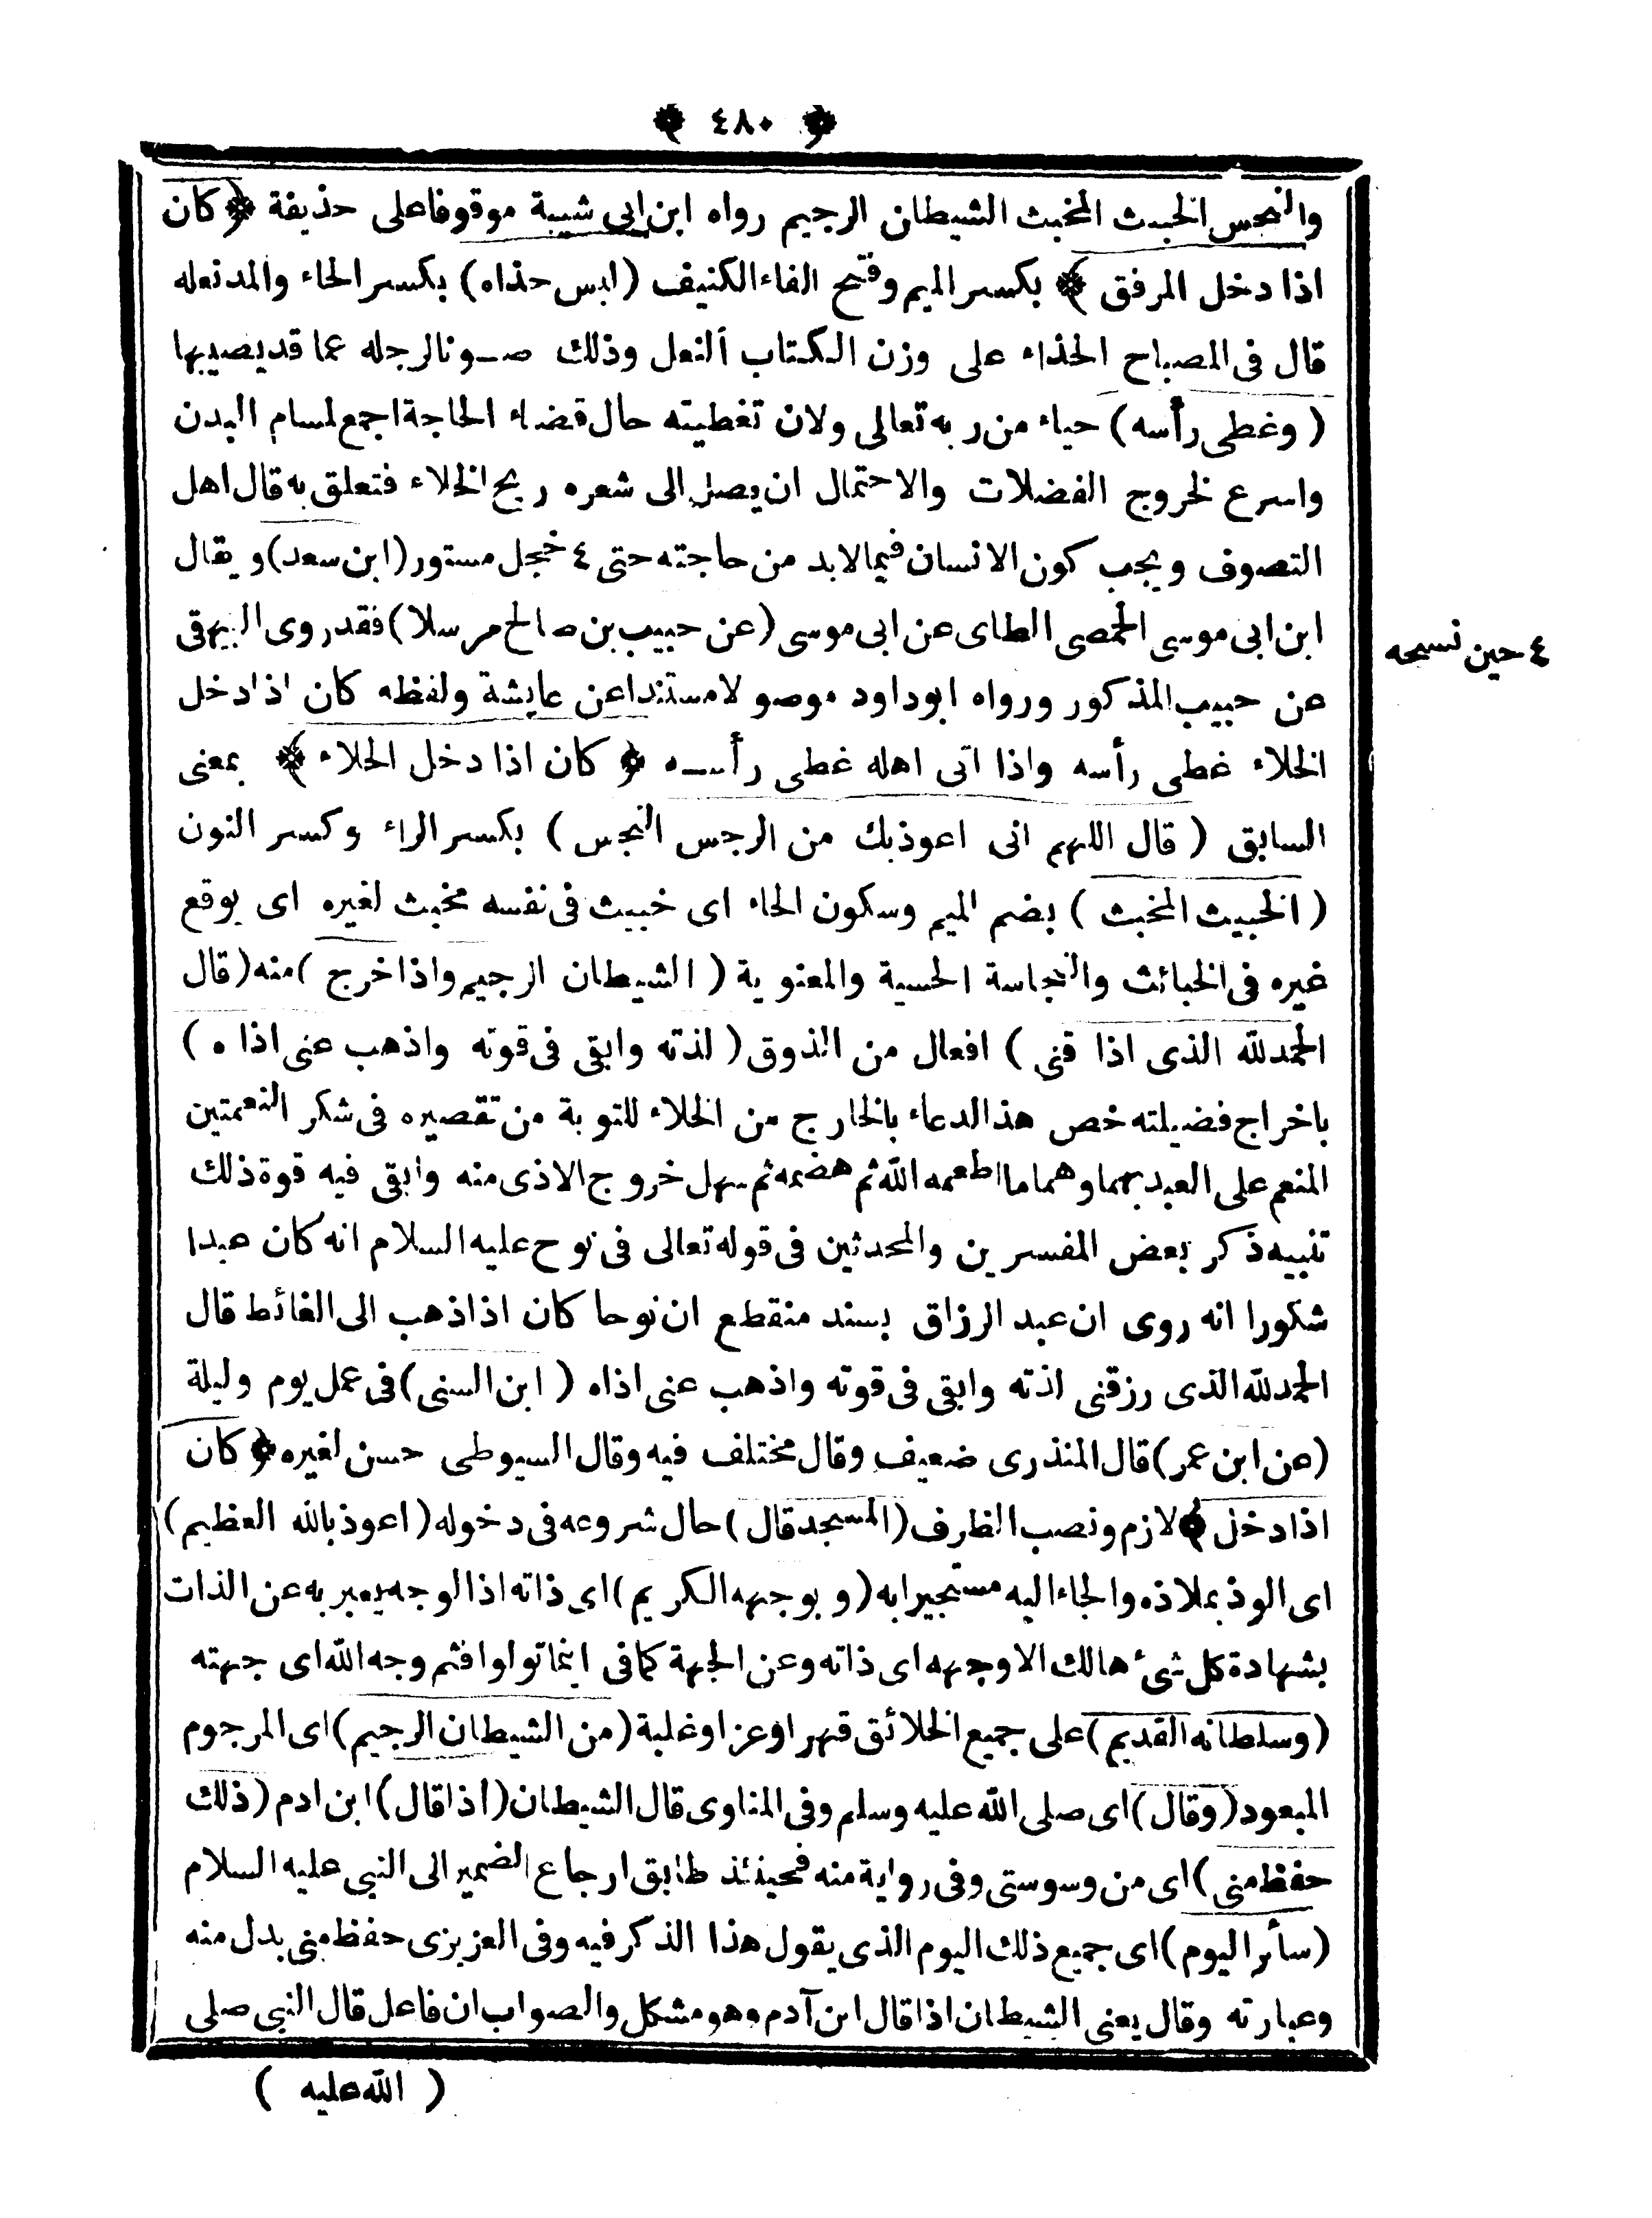 ﴿ ٤٨٠ ﴾
والنجس الخبيث المخبث الشيطان الرجيم رواه ابن ابى شيبة موقوفا على حذيفة ﴿ كان
اذا دخل المرفق ﴾ بكسر الميم وفتح الفاء الكنيف (لبس حذاه) بكسر الحاء والمد نعله
قال فى المصباح الحذاء على وزن الكتاب النعل وذلك صونا لرجله عما قد يصيبها
(وغطى رأسه) حياء من ربه تعالى ولان تغطيته حال قضاء الحاجة اجمع لمسام البدن
واسرع لخروج الفضلات والاحتمال ان يصل الى شعره ريح الخلاء فتعلق به قال اهل
التصوف ويجب كون الانسان فيما لابد من حاجته حتى ٤ خجل مستور (ابن سعد) ويقال
ابن ابى موسى الحمصى الطاى عن ابى موسى (عن حبيب بن صالح مرسلا) فقد روى البيهقى
عن حبيب المذكور ورواه ابوداود موصولا مستندا عن عايشة ولفظه كان اذا دخل
الخلاء غطى رأسه واذا اتى اهله غطى رأسه ﴿ كان اذا دخل الخلاء ﴾ بمعنى
السابق (قال اللهم انى اعوذبك من الرجس النجس) بكسر الراء وكسر النون
(الخبيث المخبث) بضم الميم وسكون الخاء اى خبيث فى نفسه مخبث لغيره اى يوقع
غيره فى الخبائث والنجاسة الحسية والمعنوية (الشيطان الرجيم واذا خرج) منه (قال
الحمدلله الذى اذا قنى) افعال من الذوق (لذته وابقى فى قوته واذهب عنى اذا ه)
باخراج فضيلته خص هذ الدعاء بالخارج من الخلاء للتوبة من تقصيره فى شكر النعمتين
المنعم على العبد بهما وهما ما اطعمه الله ثم هضمه ثم سهل خروج الاذى منه وابقى فيه قوة ذلك
تنبيه ذكر بعض المفسرين والمحدثين فى قوله تعالى فى نوح عليه السلام انه كان عبدا
شكورا انه روى ان عبد الرزاق بسند منقطع ان نوحا كان اذا ذهب الى الغائط قال
الحمدلله الذى رزقنى لذته وابقى فى قوته واذهب عنى اذاه (ابن السنى) فى عمل يوم وليلة
(عن ابن عمر) قال المنذرى ضعيف وقال مختلف فيه وقال السيوطى حسن لغيره ﴿ كان
اذا دخل ﴾ لازم ونصب الظرف (المسجد قال) حال شروعه فى دخوله (اعوذ بالله العظيم)
اى الوذ بملاذه والجاء اليه مستجيرا به (وبوجهه الكريم) اى ذاته اذا الوجه يعبر به عن الذات
بشهادة كل شئ هالك الا وجهه اى ذاته وعن الجهة كما فى اينما تولوا فثم وجه الله اى جهته
(وسلطانه القديم) على جميع الخلائق قهرا وعزا وغلبة (من الشيطان الرجيم) اى المرجوم
المبعود (وقال) اى صلى الله عليه وسلم وفى المناوى قال الشيطان (اذا قال) ابن ادم (ذلك
حفظ منى) اى من وسوستى وفى رواية منه فحينئذ طابق ارجاع الضمير الى النبى عليه السلام
(سأر اليوم) اى جميع ذلك اليوم الذى يقول هذا الذكر فيه وفى العزيزى حفظ منى بدل منه
وعبارته وقال يعنى الشيطان اذا قال ابن آدم وهو مشكل والصواب ان فاعل قال النبى صلى
(الله عليه)
٤ حين نسخه